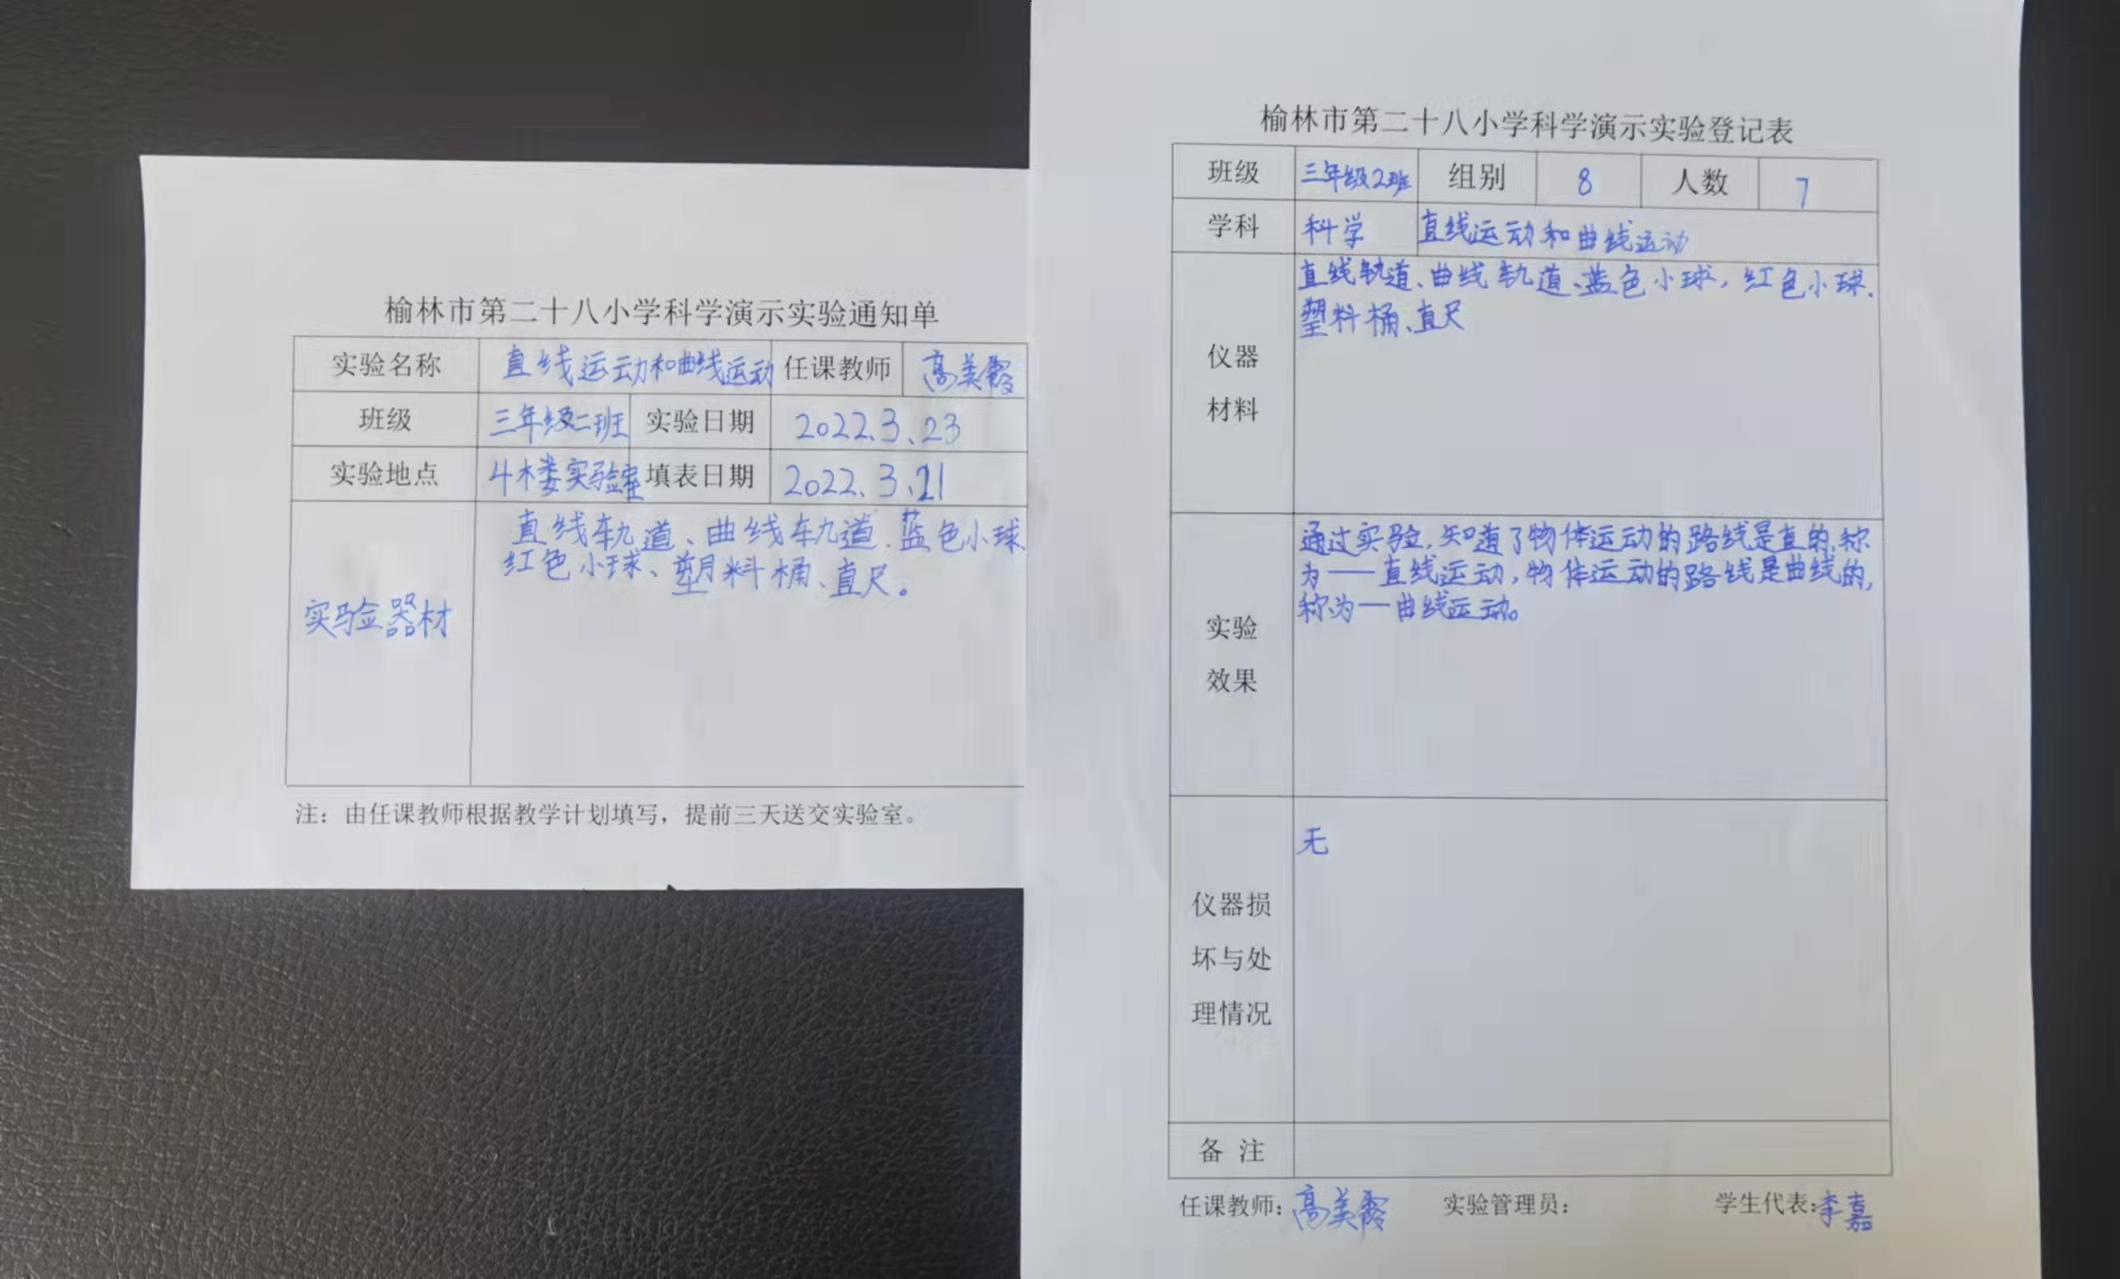 榆林市第二十八小学科学演示实验通知单
实验名称 直线运动和曲线运动 任课教师 高美霞
班级 三年级二班 实验日期 2022.3.23
实验地点 4楼实验室 填表日期 2022.3.21
实验器材 直线轨道、曲线轨道、蓝色小球、
红色小球、塑料桶、直尺。
注：由任课教师根据教学计划填写，提前三天送交实验室。
榆林市第二十八小学科学演示实验登记表
班级 三年级2班 组别 8 人数 7
学科 科学 直线运动和曲线运动
仪器
材料
直线轨道、曲线轨道、蓝色小球，红色小球、
塑料桶、直尺
实验
效果
通过实验，知道了物体运动的路线是直的，称
为——直线运动，物体运动的路线是曲线的，
称为—曲线运动。
仪器损
坏与处
理情况
无
备注
任课教师：高美霞 实验管理员： 学生代表：李嘉